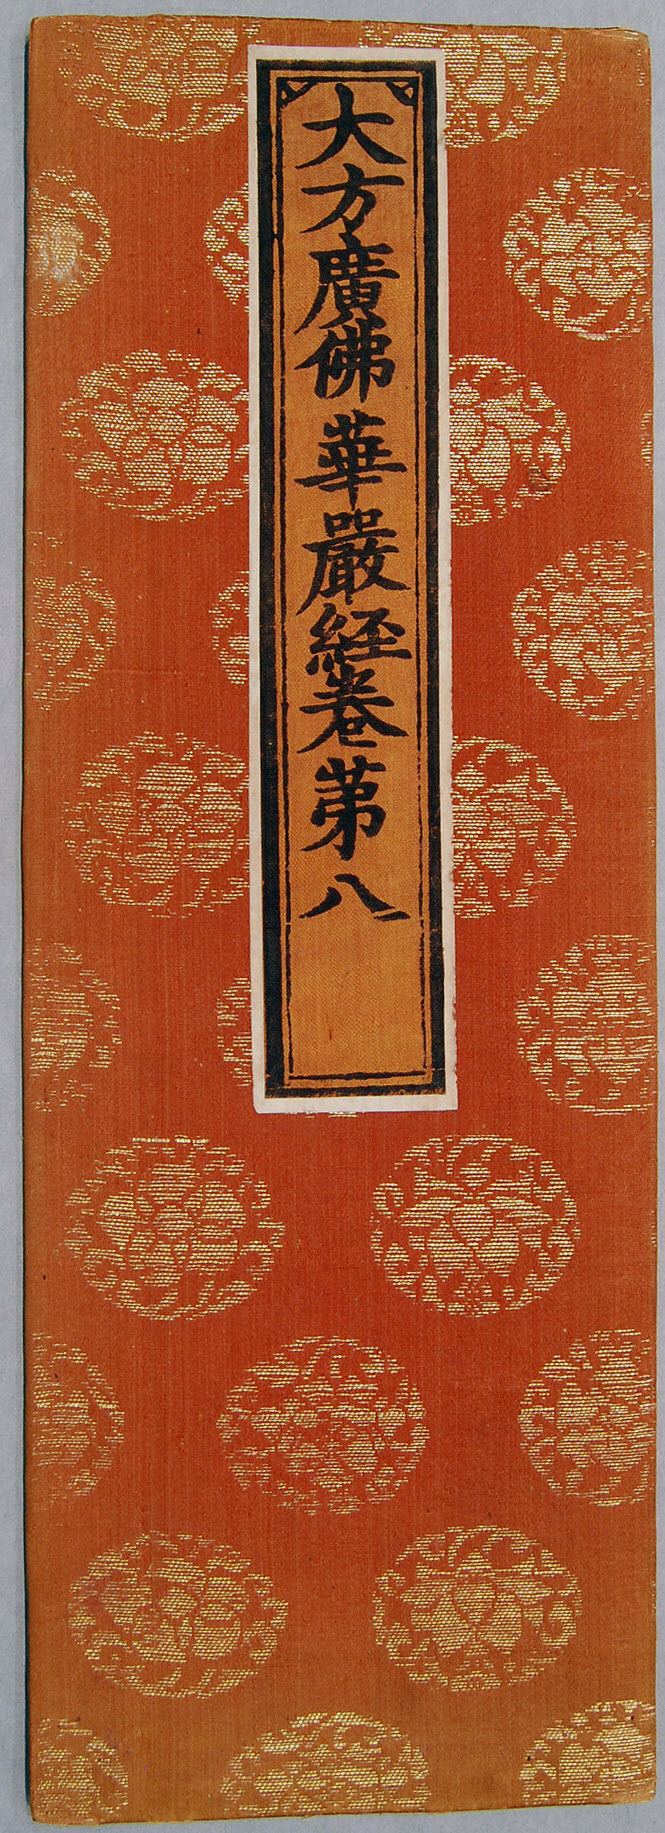 大方廣佛華嚴経卷苐八